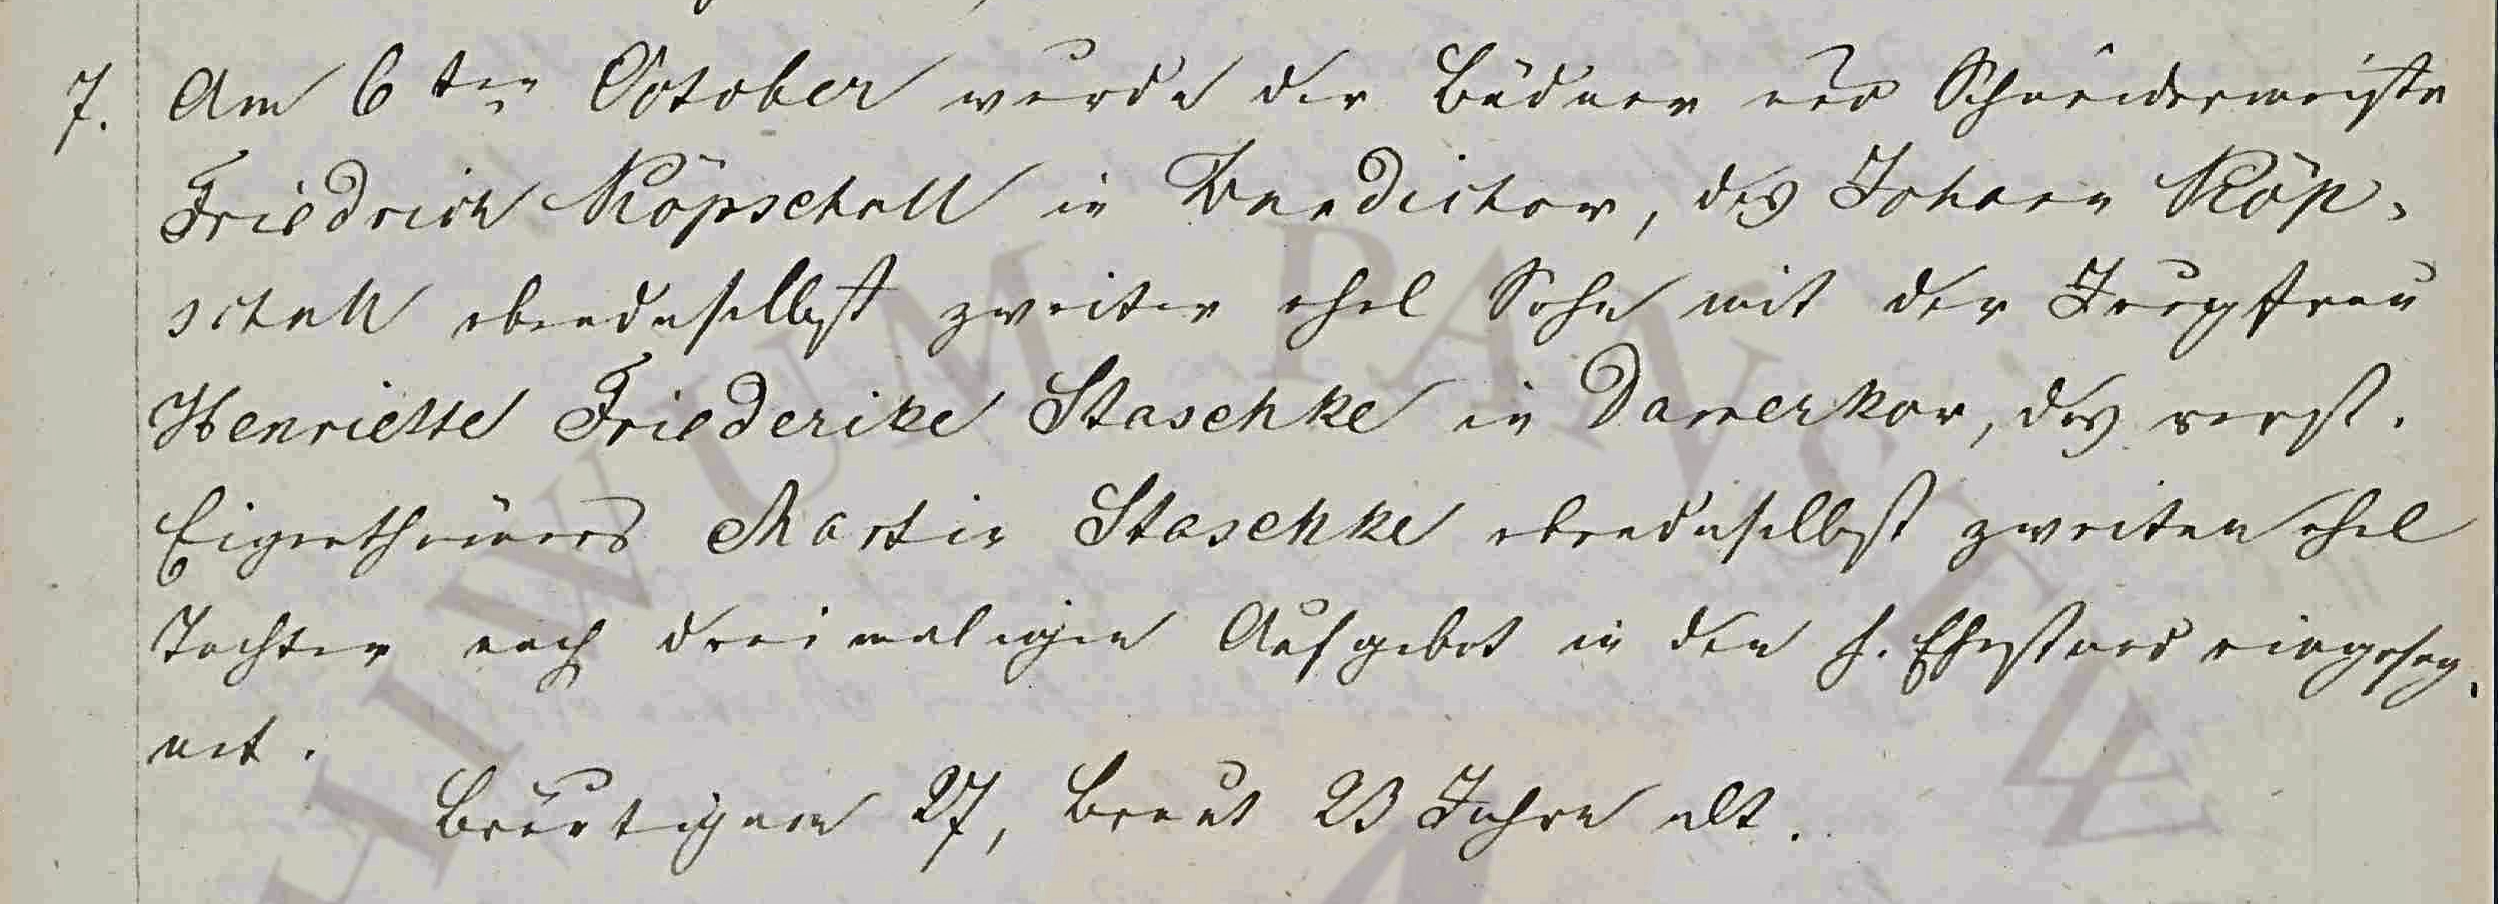 7. Am 6ten October wurde der Büdner und Schneidermeister
Friedrich Röpschall in Wundichow, des Johann Röp-
schall ebendaselbst zweiter ehel Sohn mit der Jungfrau
Henriette Friederike Staschke in Damerkow, des verst.
Eigenthümers Martin Staschke ebendaselbst zweiten ehel
Tochter nach dreimaligen Aufgebot in den h. Ehestand eingeseg-
net.
Bräutigam 27, Braut 23 Jahre alt.
HIWUM PAŃSTW